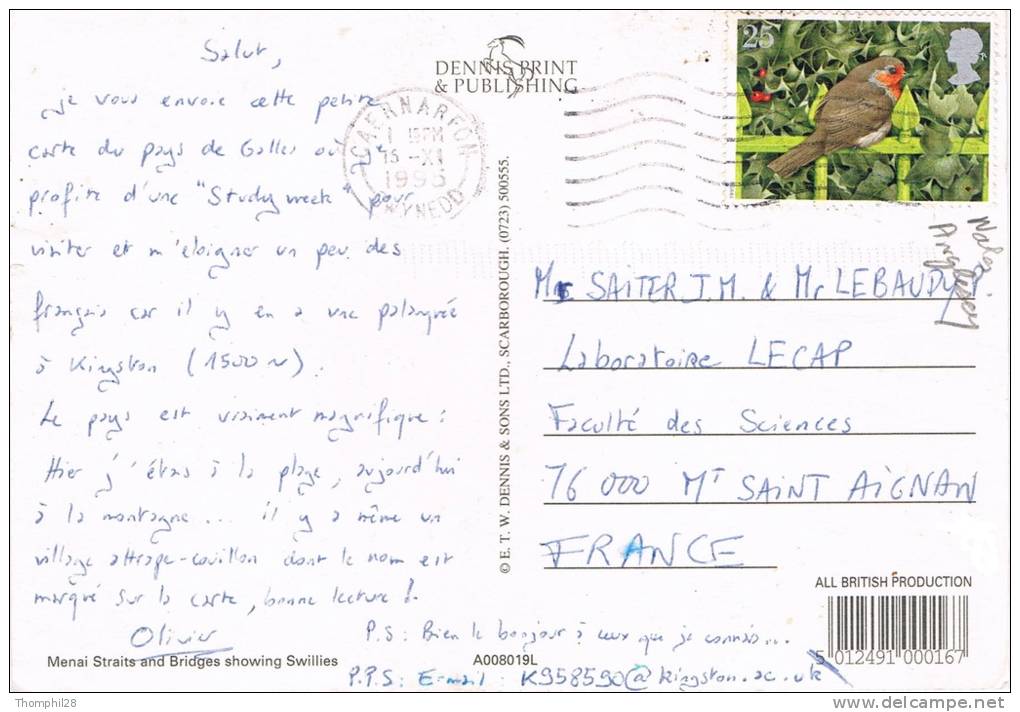 Salut,
je vous envoie cette petite
carte du pays de Galles où je
profite d'une "Study week" pour
visiter et m'éloigner un peu des
français car il y en a une palanquée
à Kingston (1500 ~).
Le pays est vraiment magnifique :
Hier j'étais à la plage, aujourd'hui
à la montagne... il y a même un
village attrape-couillon dont le nom est
marqué sur la carte, bonne lecture !
Olivier
P.S : Bien le bonjour à ceux que je connais...
P.P.S : E-mail : K958590@kingston.ac.uk
Menai Straits and Bridges showing Swillies
A008019L
DENNIS PRINT
& PUBLISHING
CAERNARFON
GWYNEDD
1995
25
© E. T. W. DENNIS & SONS LTD., SCARBOROUGH. (0723) 500555.
Wales
Anglesey
Mr SAITER J.M. & Mr LEBAUDY P.
Laboratoire LECAP
Faculté des Sciences
76 000 MT SAINT AIGNAN
FRANCE
ALL BRITISH PRODUCTION
5 012491 000167
Thomphil28
delcampe.net